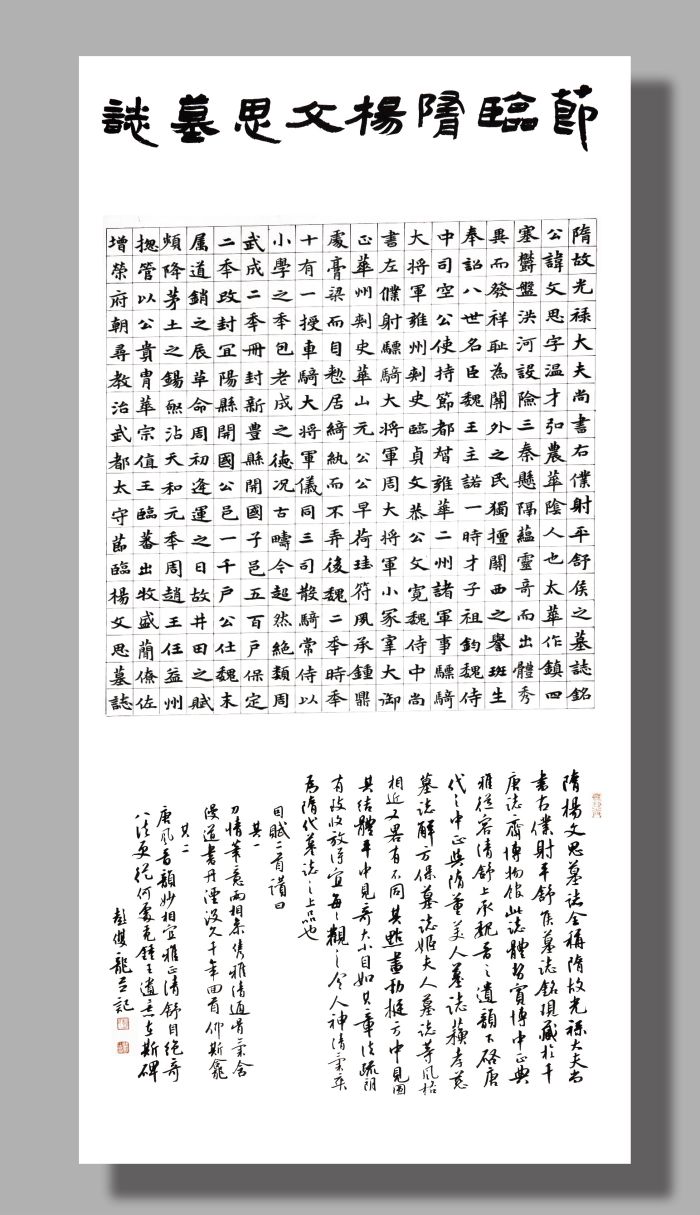 節臨隋楊文思墓誌
隋故光祿大夫尚書右僕射平舒侯之墓誌銘
公諱文思字温才弘農華陰人也太華作鎮四
塞欝盤洪河設險三秦懸隔藴靈奇而出體秀
異而發祥耻為關外之民獨擅關西之譽班生
奉詔八世名臣魏王主諾一時才子祖鈞魏侍
中司空公使持節都督雍華二州諸軍事驃騎
大將軍雍州刺史臨貞文恭公父寬魏侍中尚
書左僕射驃騎大將軍周大將軍小冢宰大御
正華州刺史華山元公公早荷珪符夙承鍾鼎
處膏粱而自慜居綺紈而不弄後魏二年時年
十有一授車騎大將軍儀同三司散騎常侍以
小學之年包老成之德况古疇今超然絶類周
武成二年冊封新豊縣開國子邑五百戶保定
二年改封冝陽縣開國公邑一千戶公仕魏末
属道銷之辰革命周初逢運之日故井田之賦
頻降茅土之錫無沾天和元年周趙王任益州
摠管以公貴胄華宗值王臨蕃出牧盛蕳僚佐
增榮府朝尋教治武都太守節臨楊文思墓誌
隋楊文思墓誌全稱隋故光祿大夫尚
書右僕射平舒侯墓誌銘現藏於千
唐誌齋博物館此誌體勢寬博中正典
雅從容清舒上承魏晋之遺韻下啓唐
代之中正與隋董美人墓誌蘇孝慈
墓誌解方保墓誌姬夫人墓誌等風格
相近又畧有不同其點畫勁挺方中見圓
其結體平中見奇大小自如其章法疏朗
有致收放得宜每每觀之令人神清氣爽
為隋代墓誌之上品也
因賦二首讃曰
其一
刀情筆意兩相參雋雅清通骨氣含
漫道書丹湮沒久千年回首仰斯龕
其二
唐風晋韻妙相宜雅正清舒自絶奇
八法更從何處覓鍾王遺意在斯碑
彭雙龍并記